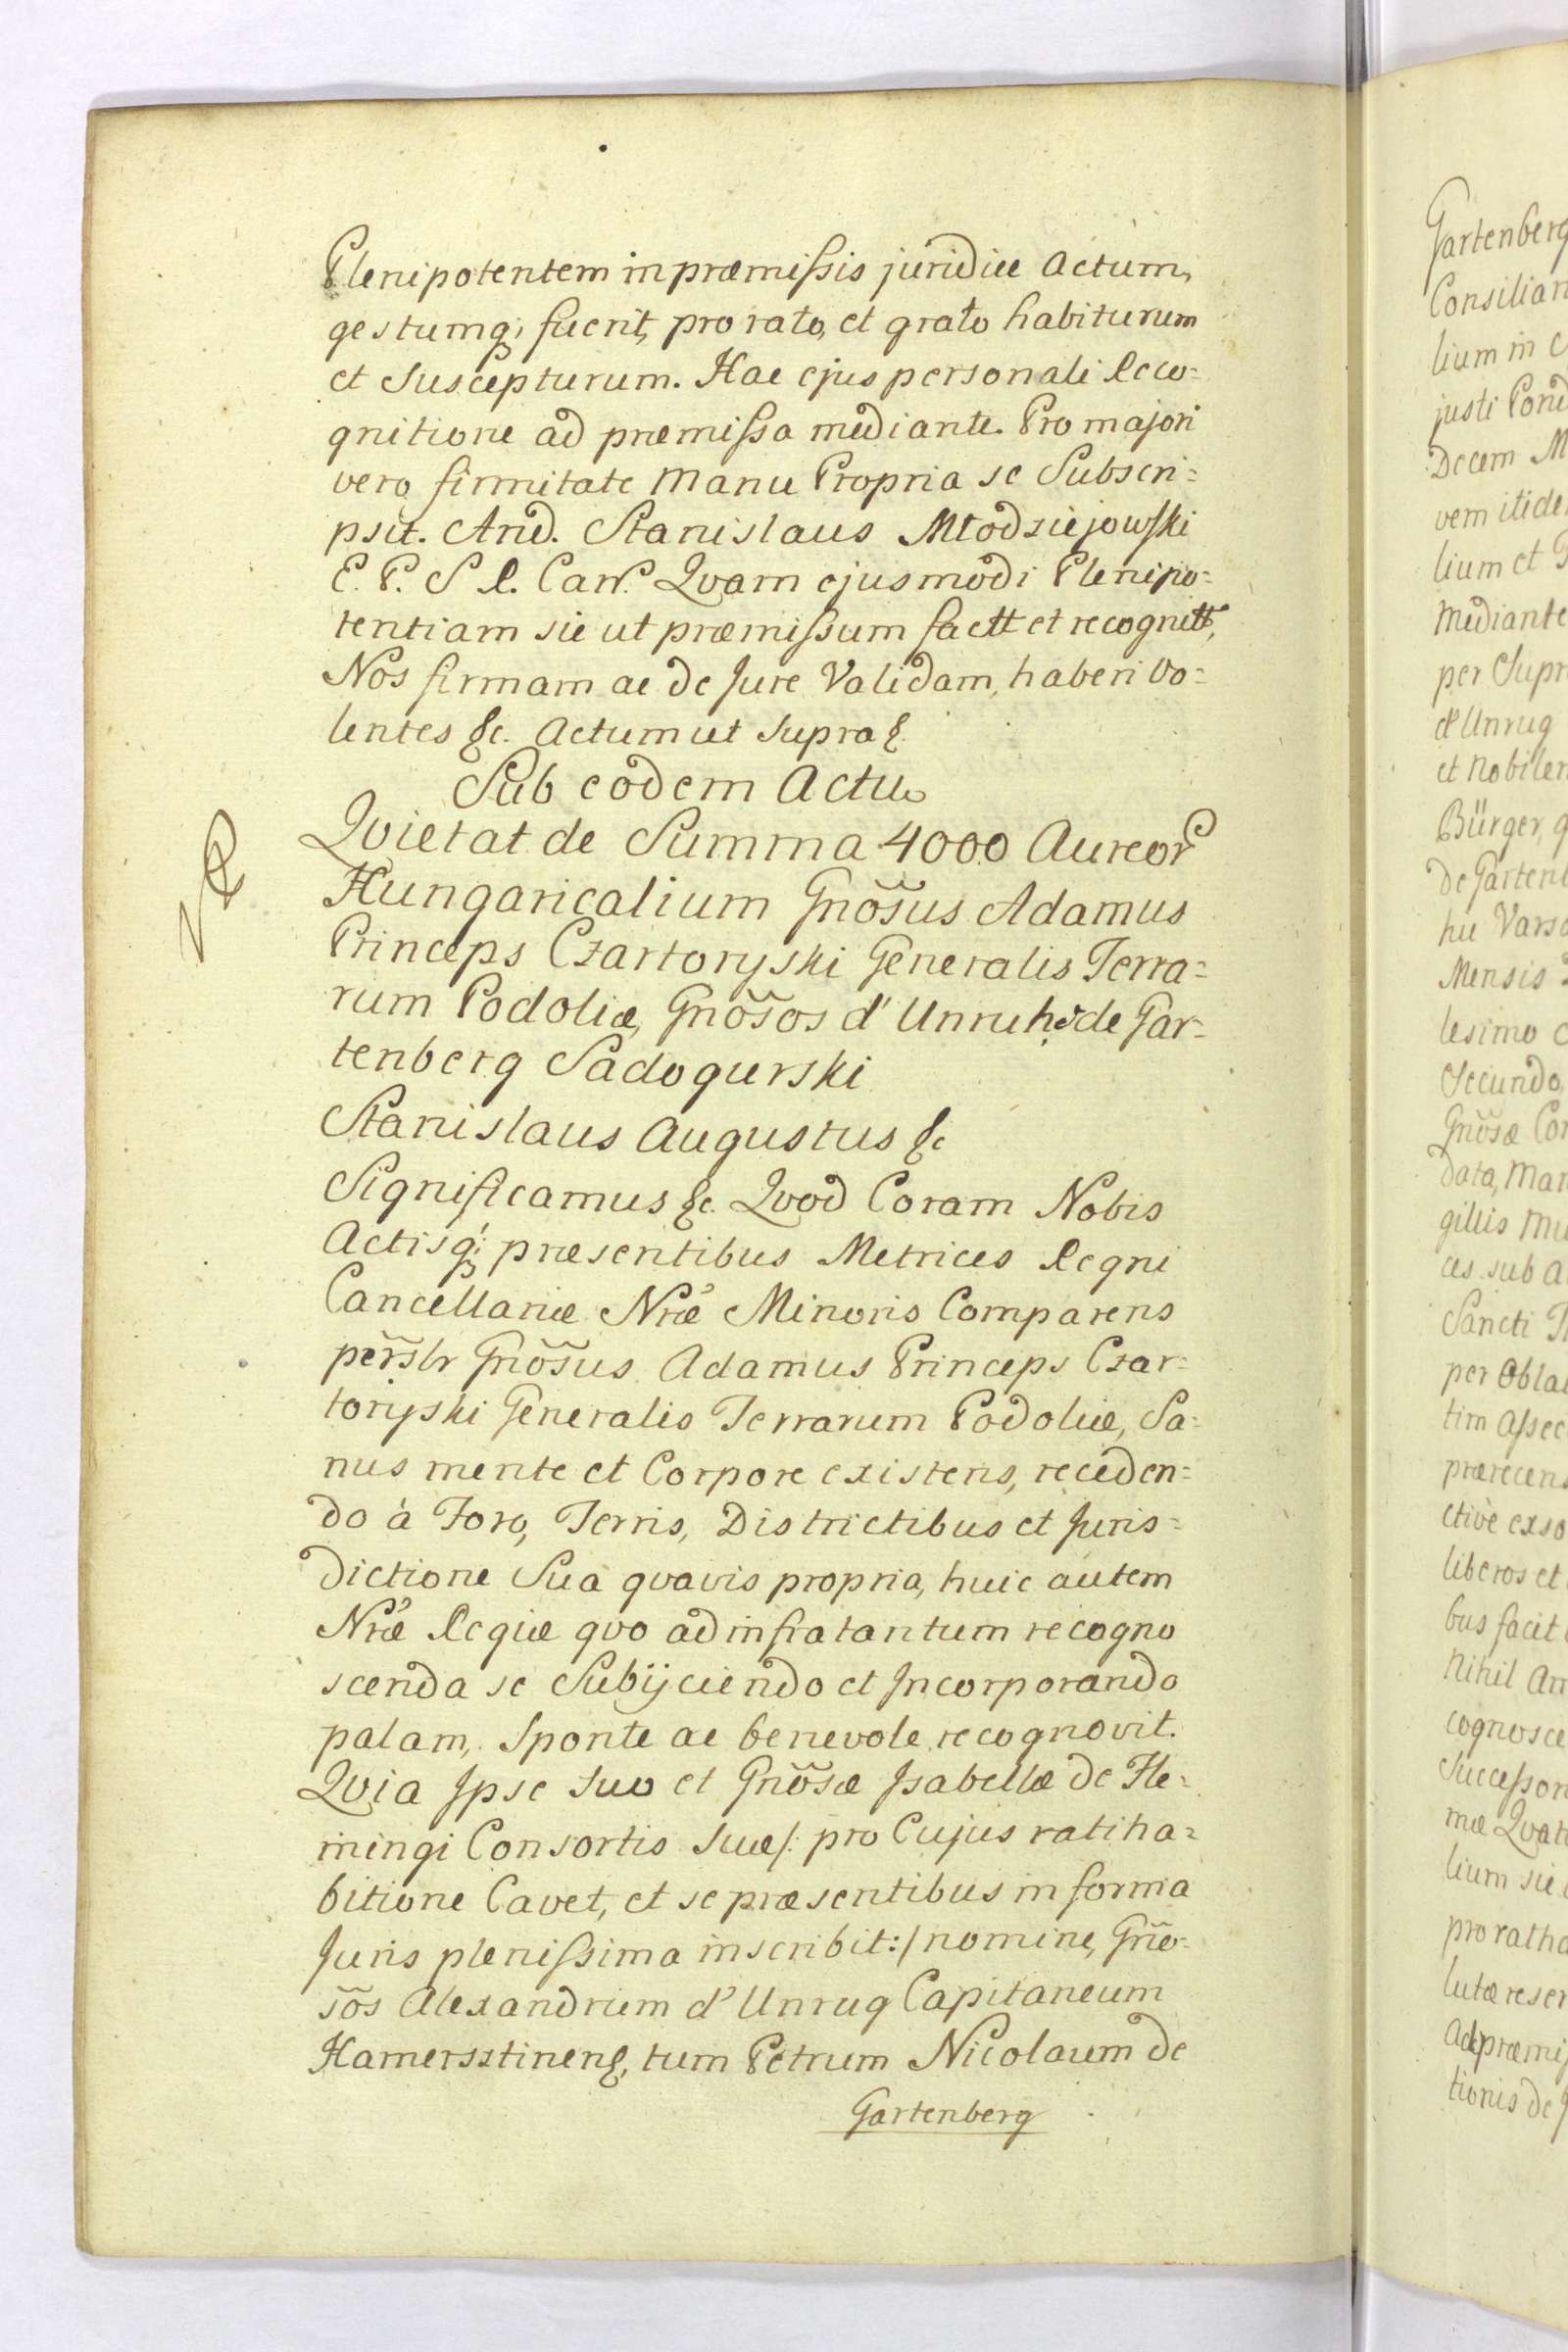 Plenipotentem in præmissis juridice actum,
gestumq; fuerit, pro rato, et grato habiturum
et Suscepturum. Hac ejus personali Reco=
gnitione ad præmissa mediante. Pro majori
vero firmitate Manu Propria se Subscri=
psit. And. Stanislaus Młodziejowski
E. P. S R. Canc. Qvam ejusmodi Plenipo=
tentiam sic ut præmissum factt et recognitt,
Nos firmam ac de Jure Validam, haberi Vo=
lentes &c. Actum ut Supra &.
Sub eodem Actu
Qvietat de Summa 4000 Aureor
Hungaricalium Gnõsus Adamus
Princeps Czartoryski Generalis Terra=
rum Podoliæ, Gnõsos d' Unruh, de Gar=
tenberg Sadogurski
Stanislaus Augustus &c
Significamus &c. Qvod Coram Nobis
Actisq; præsentibus Metrices Regni
Cancellariæ Nræ Minoris Comparens
persłr Gnõsus Adamus Princeps Czar=
toryski Generalis Terrarum Podoliæ, Sa=
nus mente et Corpore existens, receden=
do à Foro, Terris, Districtibus et Juris=
dictione Sua qvavis propria, huic autem
Nræ Regiæ qvo ad infra tantum recogno
scenda se Subijciendo et Incorporando
palam, Sponte ac benevole recognovit.
Qvia Ipse Suo et Gnõsæ Isabellæ de Fle=
mingi Consortis Suæ /: pro Cujus ratiha=
bitione Cavet, et se præsentibus in forma
Juris plenissima inscribit :/ nomine, Gño=
sõs Alexandrum d' Unrug Capitaneum
Hamersztinen&, tum Petrum Nicolaum de
Gartenberg
Gartenberg
Consiliar
lium in
justi Pond
Decem M
vem itide
lium et
Mediante
per Supr
d'Unrug
et Nobilem
Bürger, q
de Gartenb
hic Varso
Mensis
lesimo
Secundo
Gnõsæ Con
data, Man
gillis mu
ces sub A
Sancti
per Oblat
tim Assec
prærecens
ctivè exso
liberos et
bus facit
Nihil Am
cognosce
Successor
mæ Qvat
lium sic
pro ratha
lutæ reser
Ad præmis
tionis de J